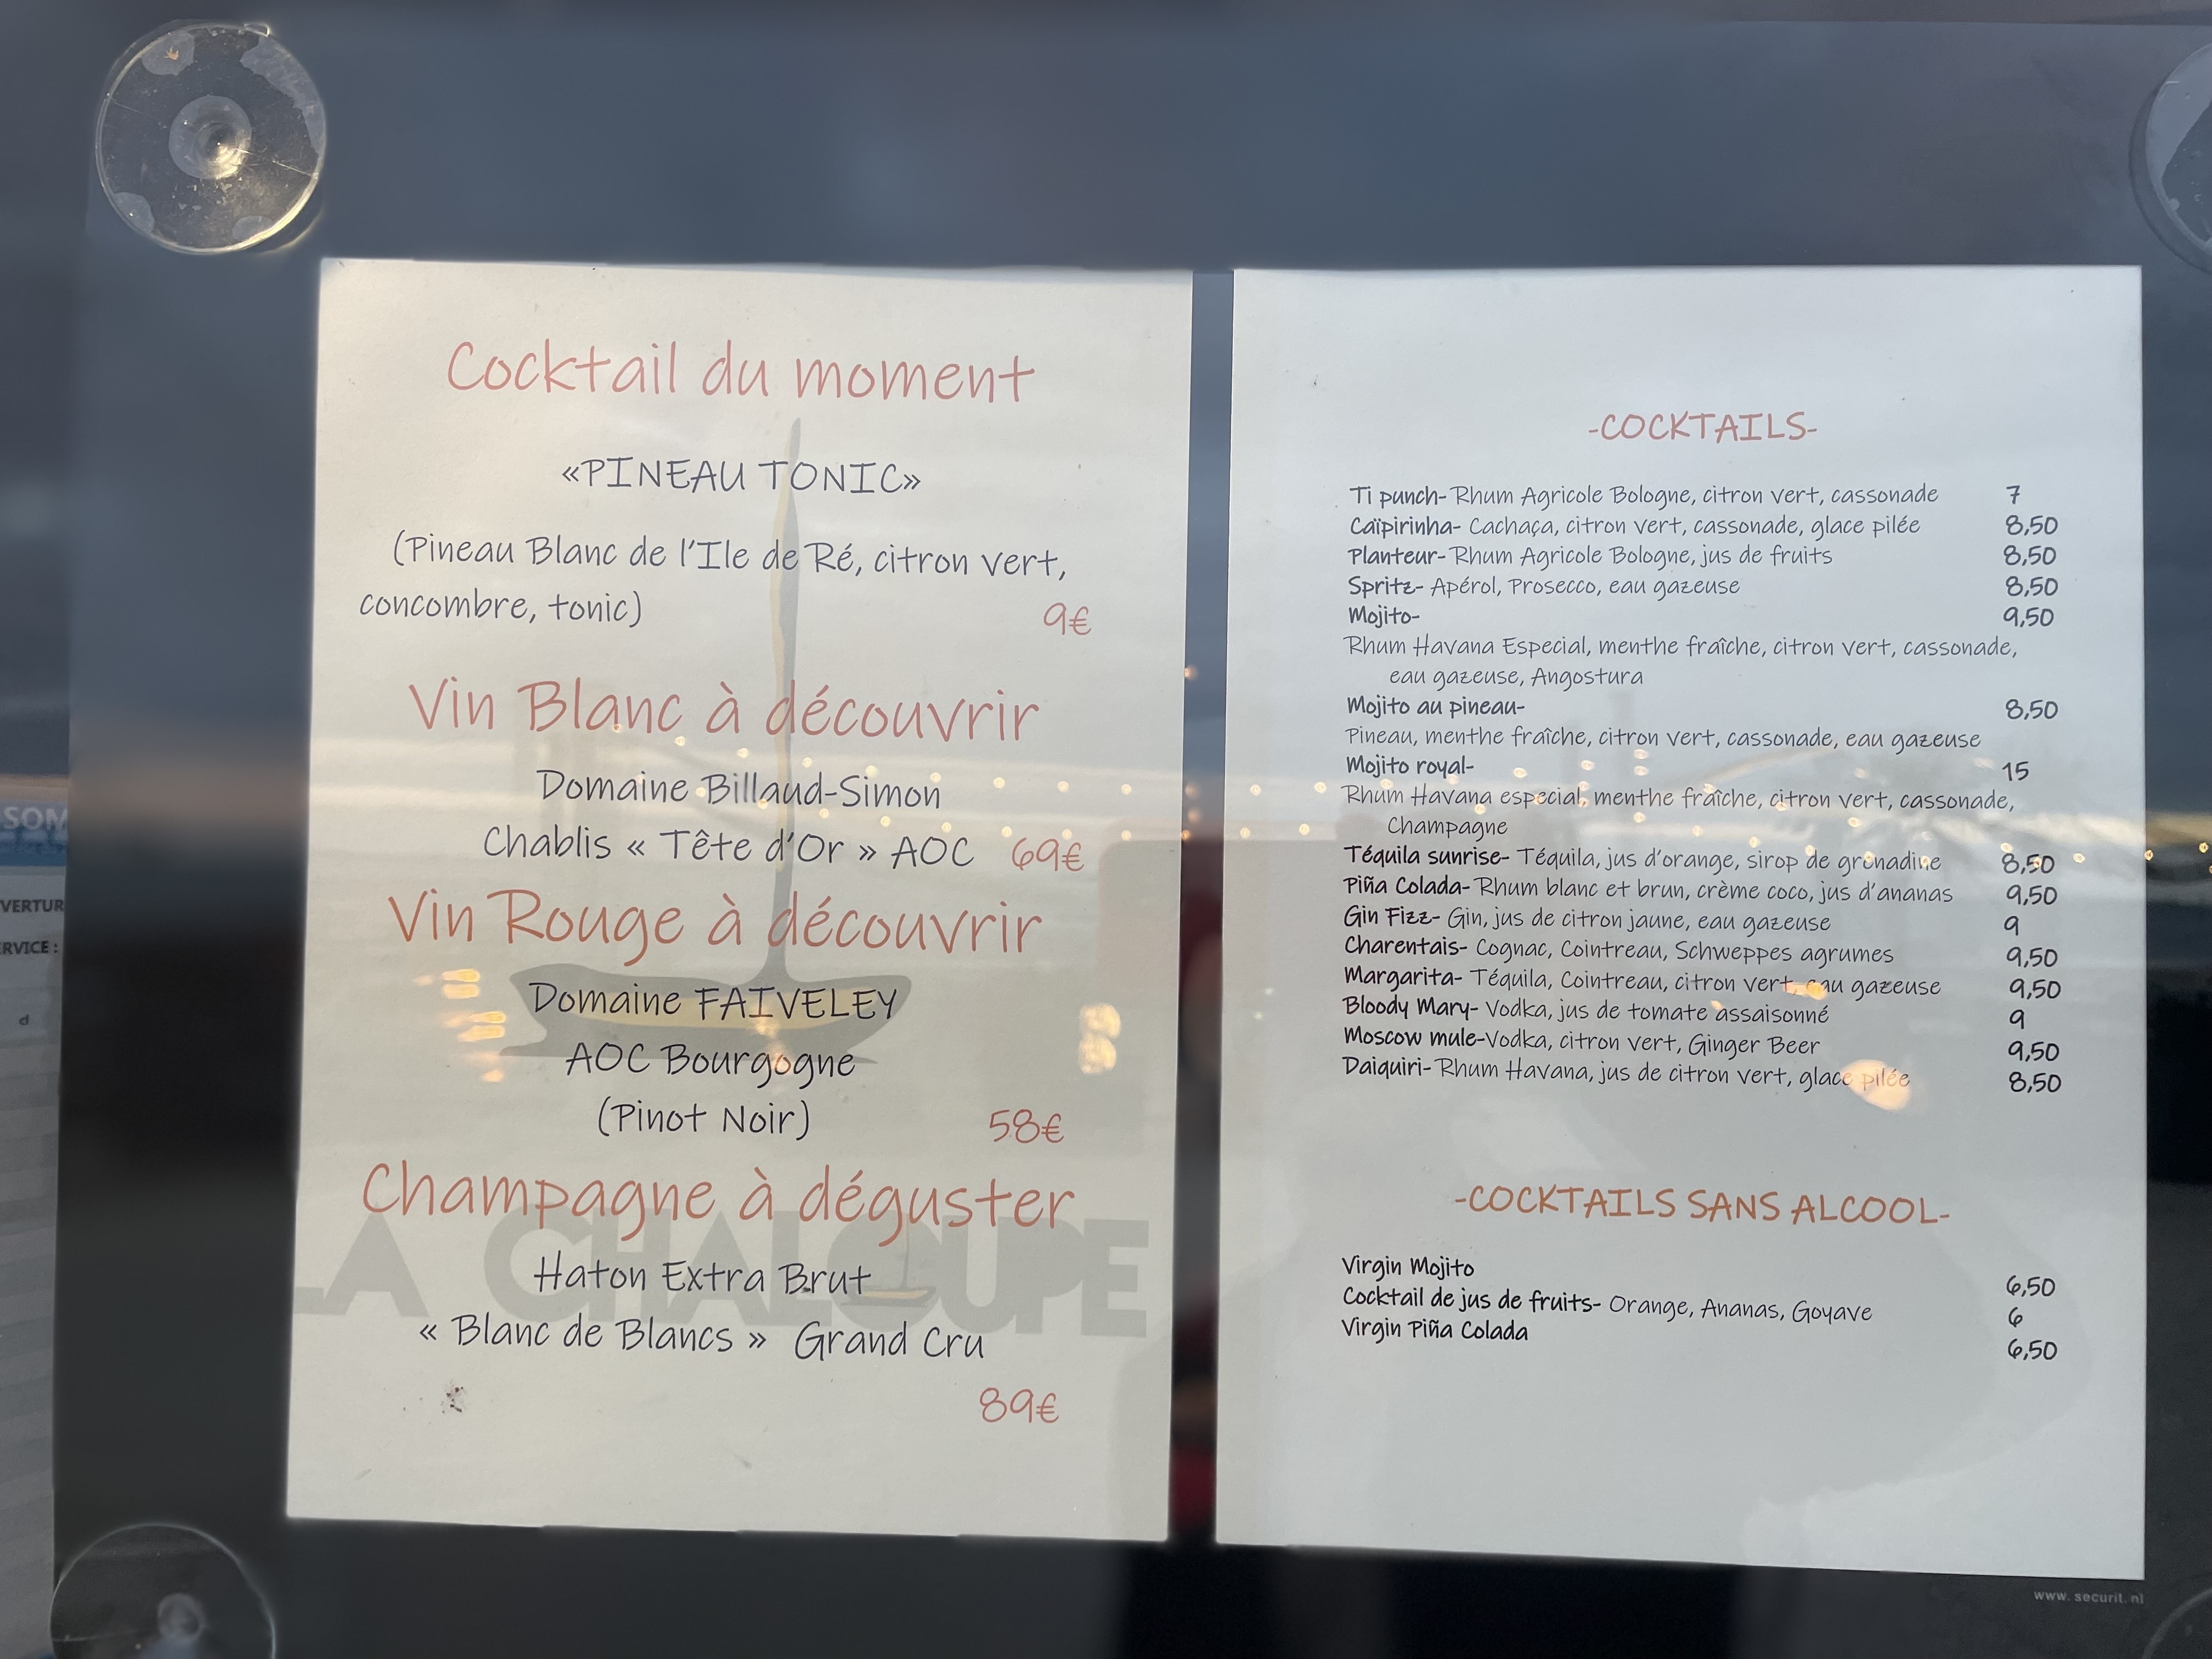 Cocktail du moment
«PINEAU TONIC»
(Pineau Blanc de l'Ile de Ré, citron vert,
concombre, tonic) 9€
Vin Blanc à découvrir
Domaine Billaud-Simon
Chablis « Tête d'Or » AOC 69€
Vin Rouge à découvrir
Domaine FAIVELEY
AOC Bourgogne
(Pinot Noir) 58€
Champagne à déguster
LA CHALOUPE
Haton Extra Brut
« Blanc de Blancs » Grand Cru
89€
-COCKTAILS-
Ti punch- Rhum Agricole Bologne, citron vert, cassonade 7
Caïpirinha- Cachaça, citron vert, cassonade, glace pilée 8,50
Planteur- Rhum Agricole Bologne, jus de fruits 8,50
Spritz- Apérol, Prosecco, eau gazeuse 8,50
Mojito- 9,50
Rhum Havana Especial, menthe fraîche, citron vert, cassonade,
eau gazeuse, Angostura
Mojito au pineau- 8,50
Pineau, menthe fraîche, citron vert, cassonade, eau gazeuse
Mojito royal- 15
Rhum Havana especial, menthe fraîche, citron vert, cassonade,
Champagne
Téquila sunrise- Téquila, jus d'orange, sirop de grenadine 8,50
Piña Colada- Rhum blanc et brun, crème coco, jus d'ananas 9,50
Gin Fizz- Gin, jus de citron jaune, eau gazeuse 9
Charentais- Cognac, Cointreau, Schweppes agrumes 9,50
Margarita- Téquila, Cointreau, citron vert, eau gazeuse 9,50
Bloody Mary- Vodka, jus de tomate assaisonné 9
Moscow mule-Vodka, citron vert, Ginger Beer 9,50
Daiquiri- Rhum Havana, jus de citron vert, glace pilée 8,50
-COCKTAILS SANS ALCOOL-
Virgin Mojito 6,50
Cocktail de jus de fruits- Orange, Ananas, Goyave 6
Virgin Piña Colada 6,50
www.securit.nl
SOM
VERTUR
RVICE :
d